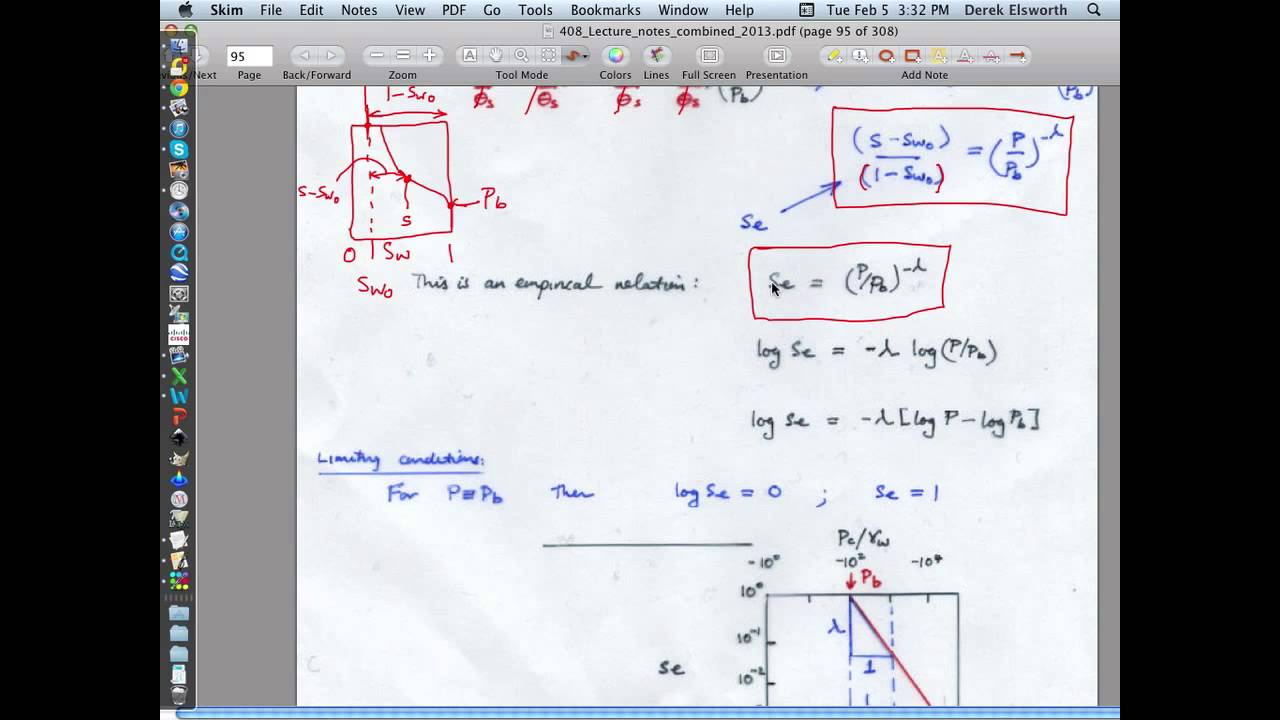 Skim File Edit Notes View PDF Go Tools Bookmarks Window Help Tue Feb 5 3:32 PM Derek Elsworth
408_Lecture_notes_combined_2013.pdf (page 95 of 308)
95
Page Back/Forward Zoom Tool Mode Colors Lines Full Screen Presentation Add Note
1-Swo
ϕs ϕs ϕs ϕs (Pb)
(Pb)
(S-Swo)/(1-Swo) = (P/Pb)^-λ
S-Swo
S
Pb
Se
0 Sw 1
Swo
This is an empirical relation: Se = (P/Pb)^-λ
log Se = -λ log(P/Pb)
log Se = -λ[log P - log Pb]
Limiting conditions:
For P≡Pb Then log Se = 0 ; Se = 1
Pc/γw
-10⁰ -10² -10⁴
Pb
10⁰
λ
10⁻¹
1
Se
10⁻²
CISCO